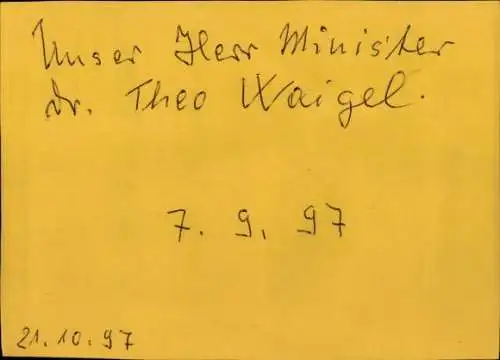 Unser Herr Minister
Dr. Theo Waigel.
7. 9. 97
21.10.97